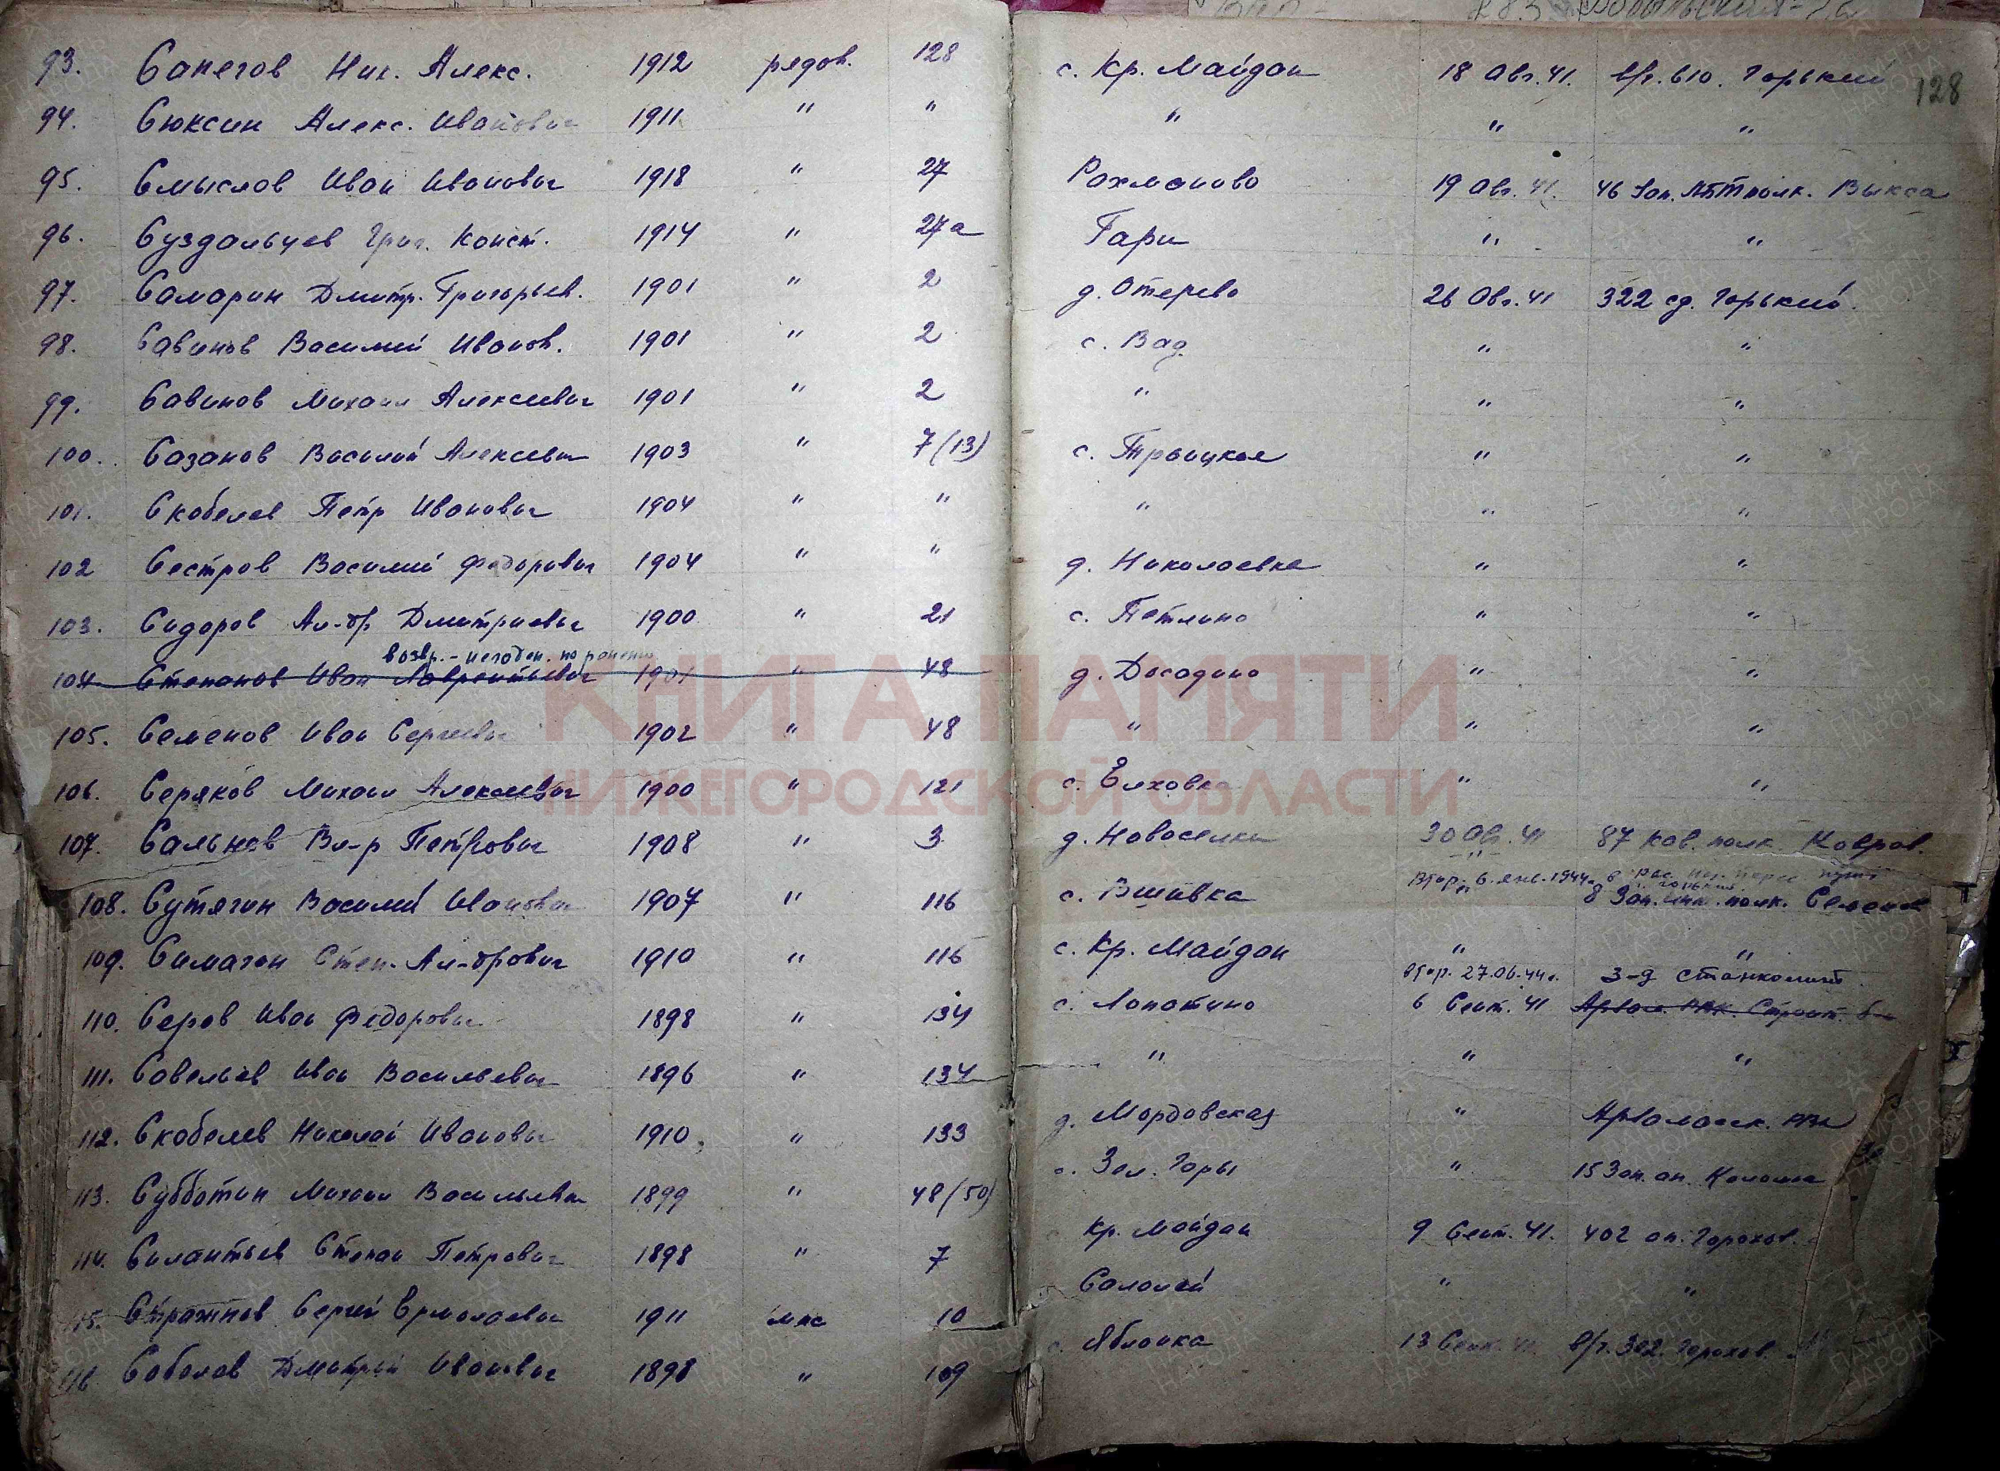 128
93. Сапегов Ник. Алекс. 1912 рядов. 128 с. Кр. Майдан 18 Авг. 41. в/ч. 610. Горький
94. Сюксин Алекс. Иванович 1911 " " " " "
95. Смыслов Иван Иванович 1918 " 27 Рахманово 19 Авг. 41. 46 Зап. полк. Выкса
96. Суздальцев Григ. Конст. 1914 " 27а Гари " "
97. Самарин Дмитр. Григорьев. 1901 " 2 д. Отерево 26 Авг. 41 322 сд. Горький.
98. Савинов Василий Иванов. 1901 " 2 с. Вад " "
99. Савинов Михаил Алексеевич 1901 " 2 " " "
100. Сазанов Василий Алексеевич 1903 " 7 (13) с. Троицкое " "
101. Скобелев Петр Иванович 1904 " " " " "
102 Сестров Василий Федорович 1904 " " д. Николаевка " "
103. Сидоров Ал-др Дмитриевич 1900 " 21 с. Петлино " "
возвр. - негоден. по ранению
104. Степанов Иван Лаврентьевич 1901 " 48 д. Досадино " "
105. Семенов Иван Сергеевич 1902 " 48 " " "
106. Серяков Михаил Алексеевич 1900 " 121 с. Елховка " "
107. Сальнов Вл-р Петрович 1908 " 3 д. Новоселки 30 Авг. 41 87 кав. полк. Ковров.
Втор. 6. янв. 1944г. в рас. нач. перес. пункт г. Горький
108. Сутягин Василий Иванович 1907 " 116 с. Вшивка " 8 Зап. инж. полк. Семенов
109. Симагин Степ. Ал-дрович 1910 " 116 с. Кр. Майдан " "
втор. 27.06.44г. з-д станколит
110. Серов Иван Федорович 1898 " 134 с. Лопатино 6 Сент. 41 Арзам. РВК. Строит. б-н
111. Савельев Иван Васильевич 1896 " 134 " " "
112. Скобелев Николай Иванович 1910 " 133 д. Мордовская " Арзамасск. РВК
113. Субботин Михаил Васильевич 1899 " 48 (50) с. Зел. Горы " 15 Зап. ап. Коломна
114. Силантьев Степан Петрович 1898 " 7 Кр. Майдан 9 Сент. 41. 402 ап. Горохов.
115. Стражнов Сергей Ермолаевич 1911 мнс 10 Салалей " "
116 Соболев Дмитрий Иванович 1898 " 109 с. Яблонка 13 Сент. 41. в/ч. 302. Горохов.
КНИГА ПАМЯТИ
НИЖЕГОРОДСКОЙ ОБЛАСТИ
ПАМЯТЬ НАРОДА